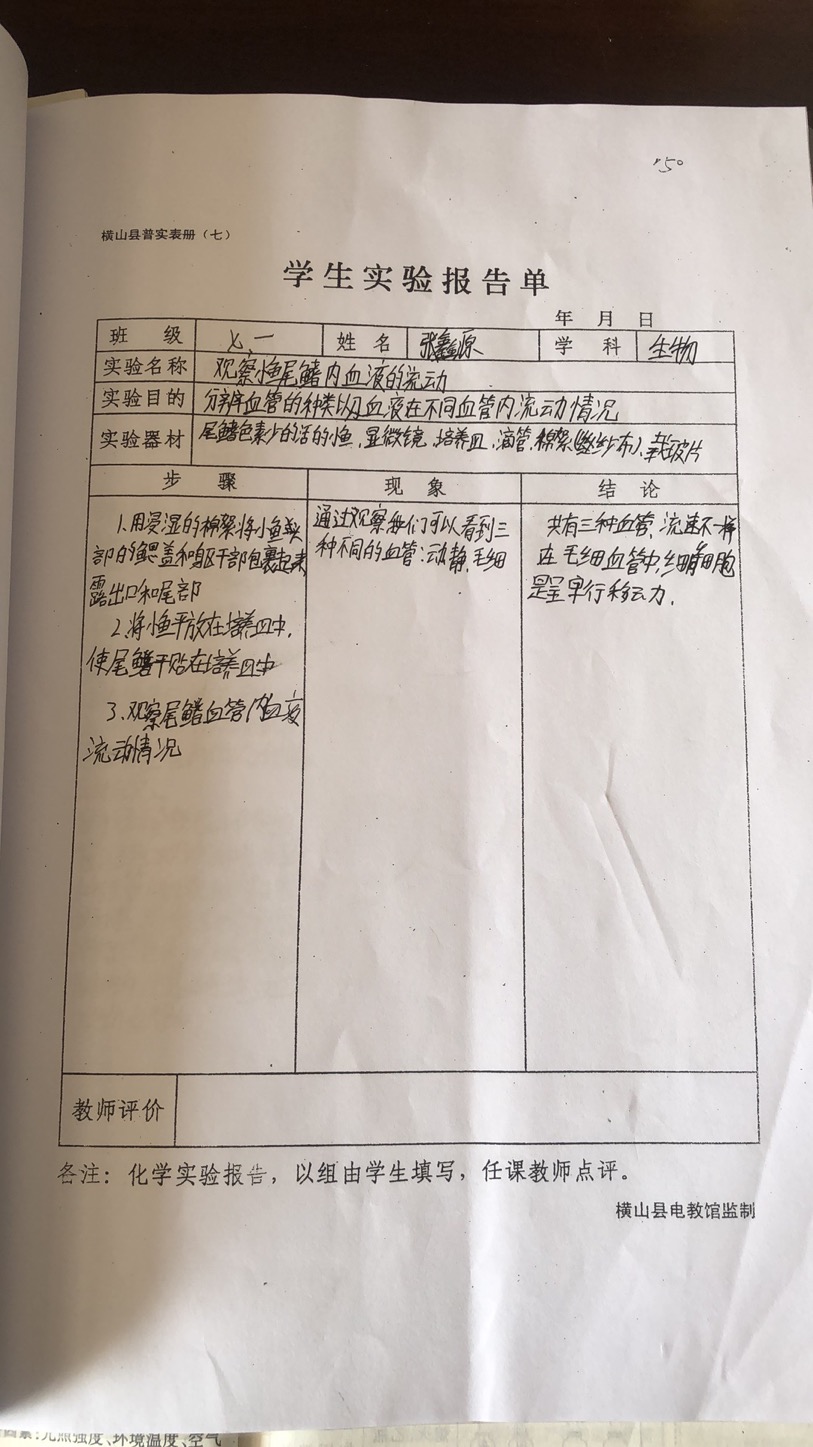 150
横山县普实表册（七）
学生实验报告单
年 月 日
班 级 七、一 姓 名 张鑫源 学 科 生物
实验名称 观察小鱼尾鳍内血液的流动
实验目的 分辨血管的种类以及血液在不同血管内流动情况
实验器材 尾鳍色素少的活的小鱼、显微镜、培养皿、滴管、棉絮(或纱布)、载玻片
步 骤 现 象 结 论
1.用浸湿的棉絮将小鱼头
部的鳃盖和躯干部包裹起来
露出口和尾部
2、将小鱼平放在培养皿中,
使尾鳍平贴在培养皿中
3、观察尾鳍血管内血液
流动情况
通过观察我们可以看到三
种不同的血管:动,静,毛细
共有三种血管,流速不一样
在毛细血管中,红细胞
是呈单行移动.
教师评价
各注：化学实验报告，以组由学生填写，任课教师点评。
横山县电教馆监制
光照强度、环境温度、空气